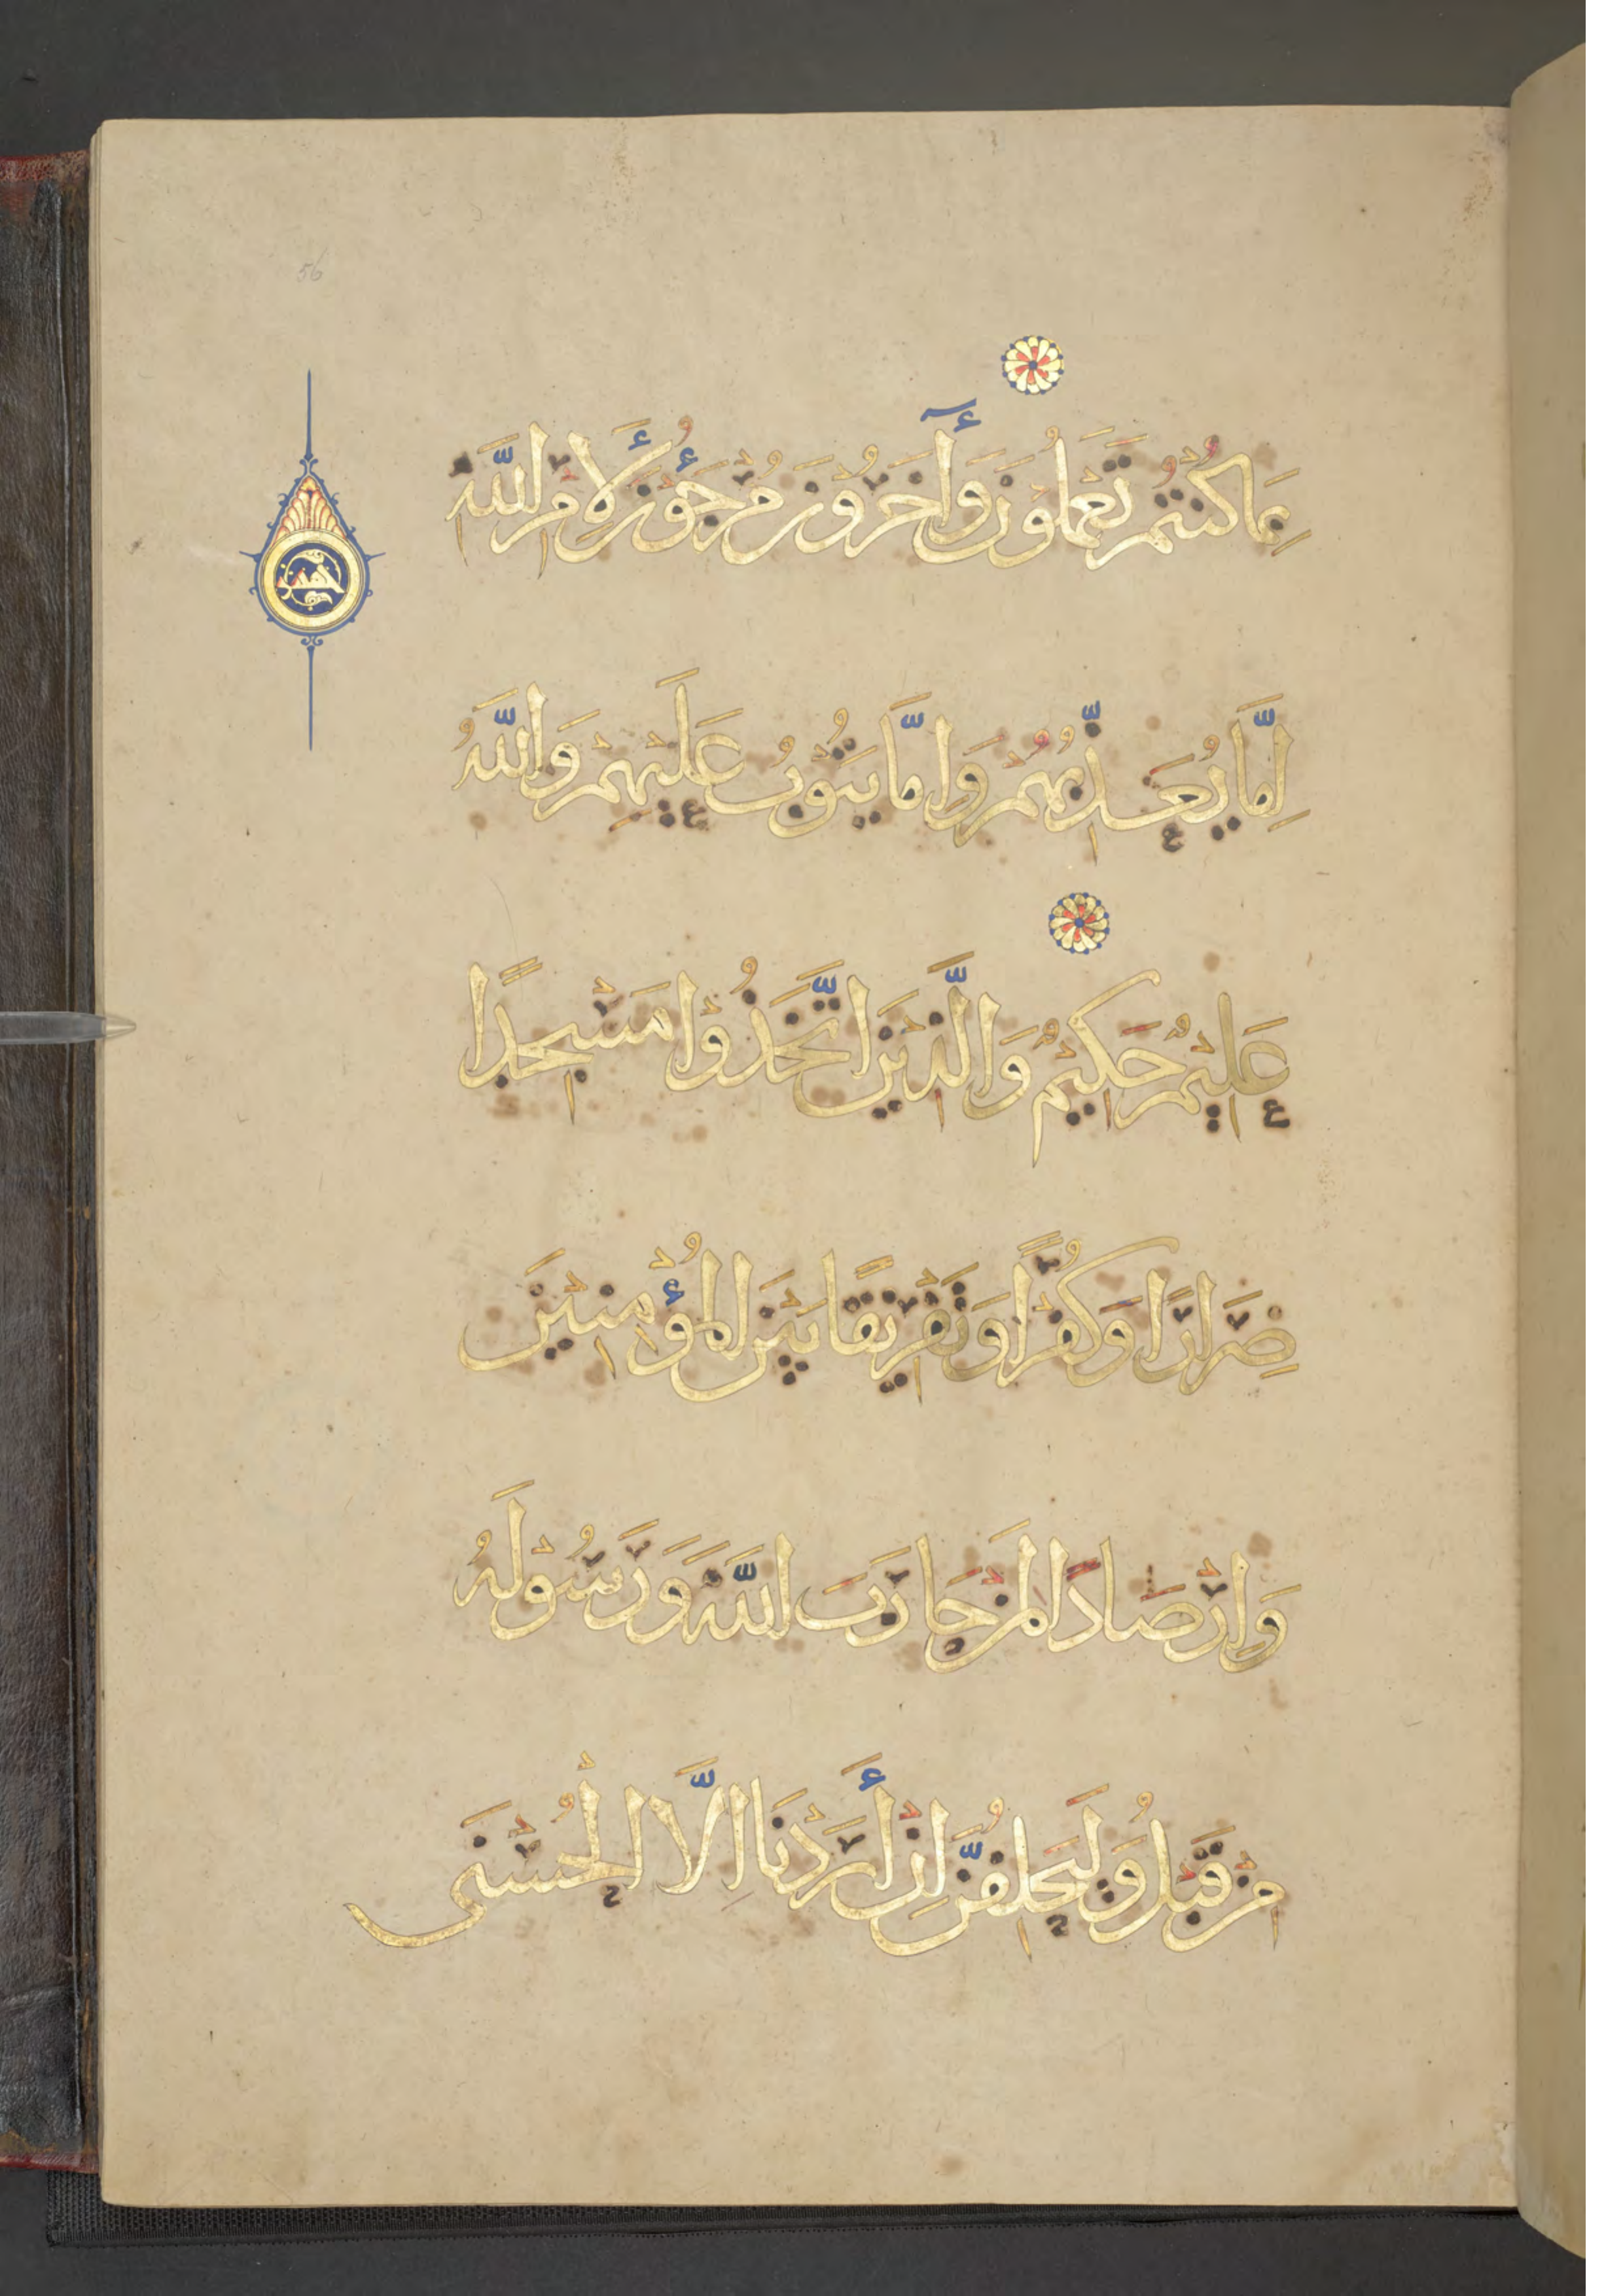 56
بِمَا كُنْتُمْ تَعْمَلُونَ وَآخَرُونَ مُرْجَؤُنَ لِأَمْرِ اللَّهِ
اِمَّا يُعَذِّبُهُمْ وَاِمَّا يَتُوبُ عَلَيْهِمْ وَاللَّهُ
عَلِيمٌ حَكِيمٌ وَالَّذِينَ اتَّخَذُوا مَسْجِدًا
ضِرَارًا وَكُفْرًا وَتَفْرِيقًا بَيْنَ الْمُؤْمِنِينَ
وَاِرْصَادًا لِمَنْ حَارَبَ اللَّهَ وَرَسُولَهُ
مِنْ قَبْلُ وَلَيَحْلِفُنَّ اِنْ أَرَدْنَا اِلَّا الْحُسْنَى